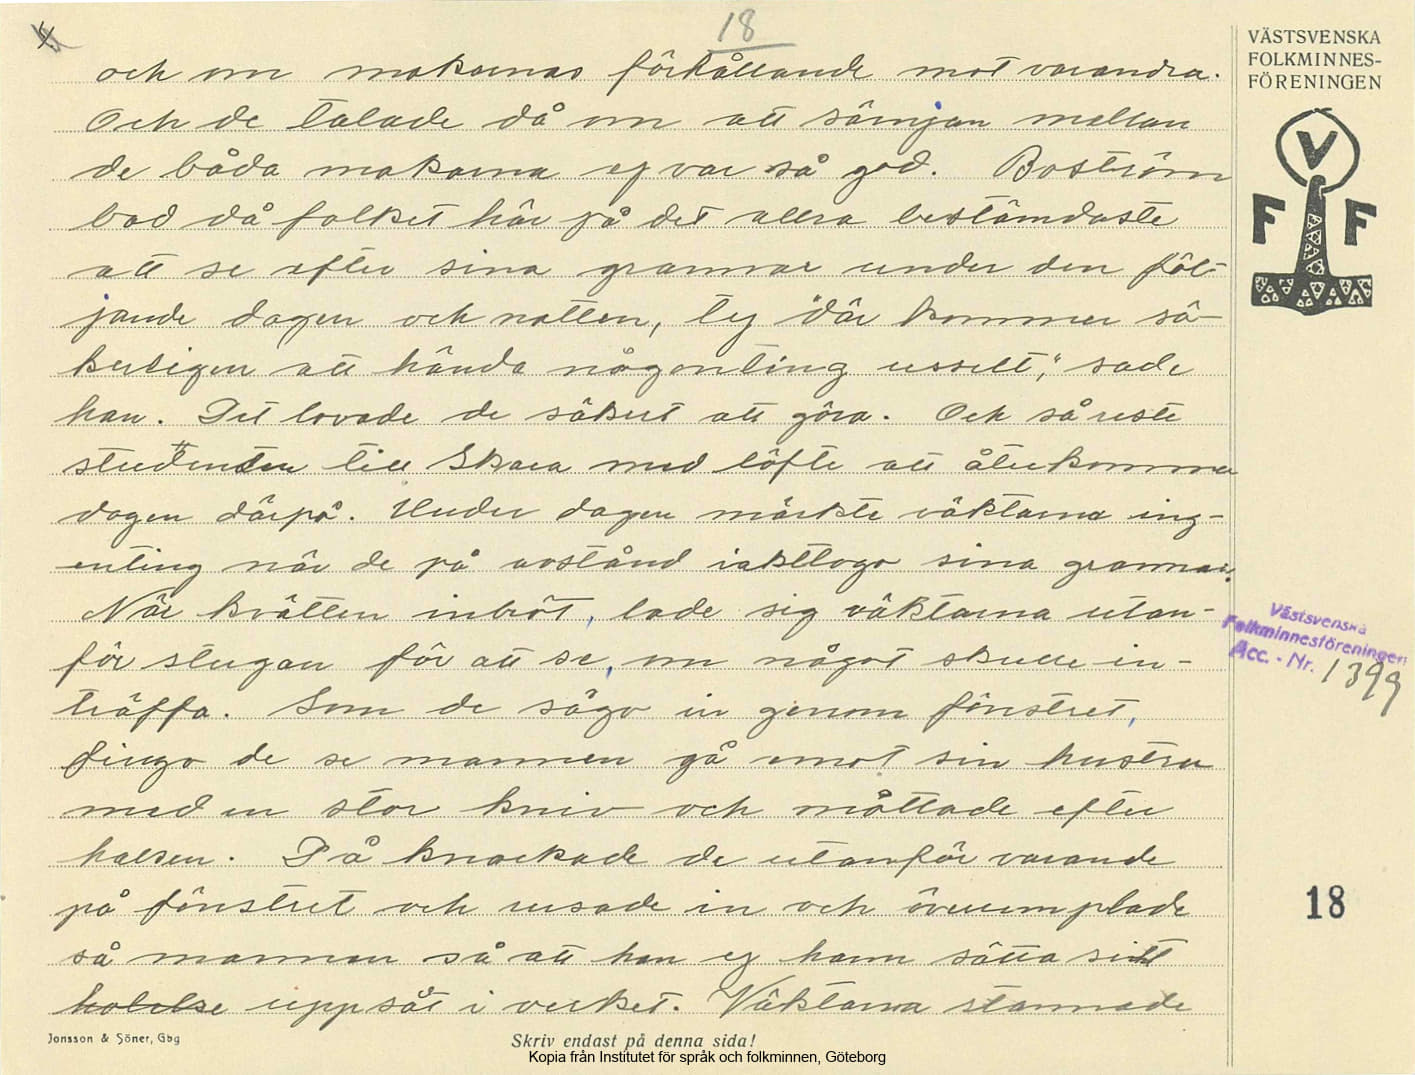 18
och om makarnas förhållande mot varandra.
Och de talade då om att sämjan mellan
de båda makarna ej var så god. Boström
bad då folket här på det allra bestämdaste
att se efter sina grannar under den föl-
jande dagen och natten, ty "där kommer sä-
kerligen att hända någonting usselt", sade
han. Det lovade de säkert att göra. Och så reste
studenten till Skara med löfte att återkomma
dagen därpå. Under dagen märkte väktarna ing-
enting när de på avstånd iakttogo sina grannar.
När kvällen inbröt, lade sig väktarna utan-
för stugan för att se, om något skulle in-
träffa. Som de sågo in genom fönstret,
fingo de se mannen gå emot sin hustru
med en stor kniv och måttade efter
halsen. Då knackade de utanför varande
på fönstret och rusade in och överrumplade
så mannen så att han ej hann sätta sitt
uppsåt i verket. Väktarna stannade
VÄSTSVENSKA
FOLKMINNES-
FÖRENINGEN
V
F F
Västsvenska
Folkminnesföreningen
Acc. - Nr. 1399
18
Jonsson & Söner, Gbg
Skriv endast på denna sida!
Kopia från Institutet för språk och folkminnen, Göteborg